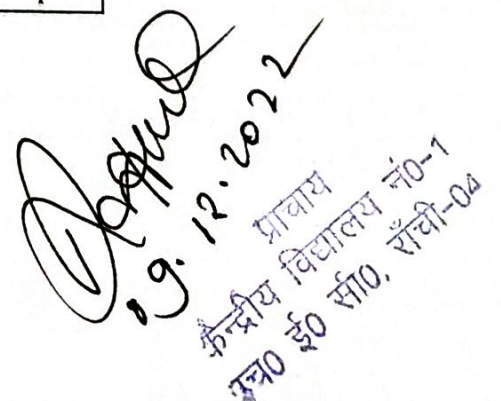 09.12.2022
प्राचार्य
केन्द्रीय विद्यालय नं०-1
एच० ई० सी०, राँची-04